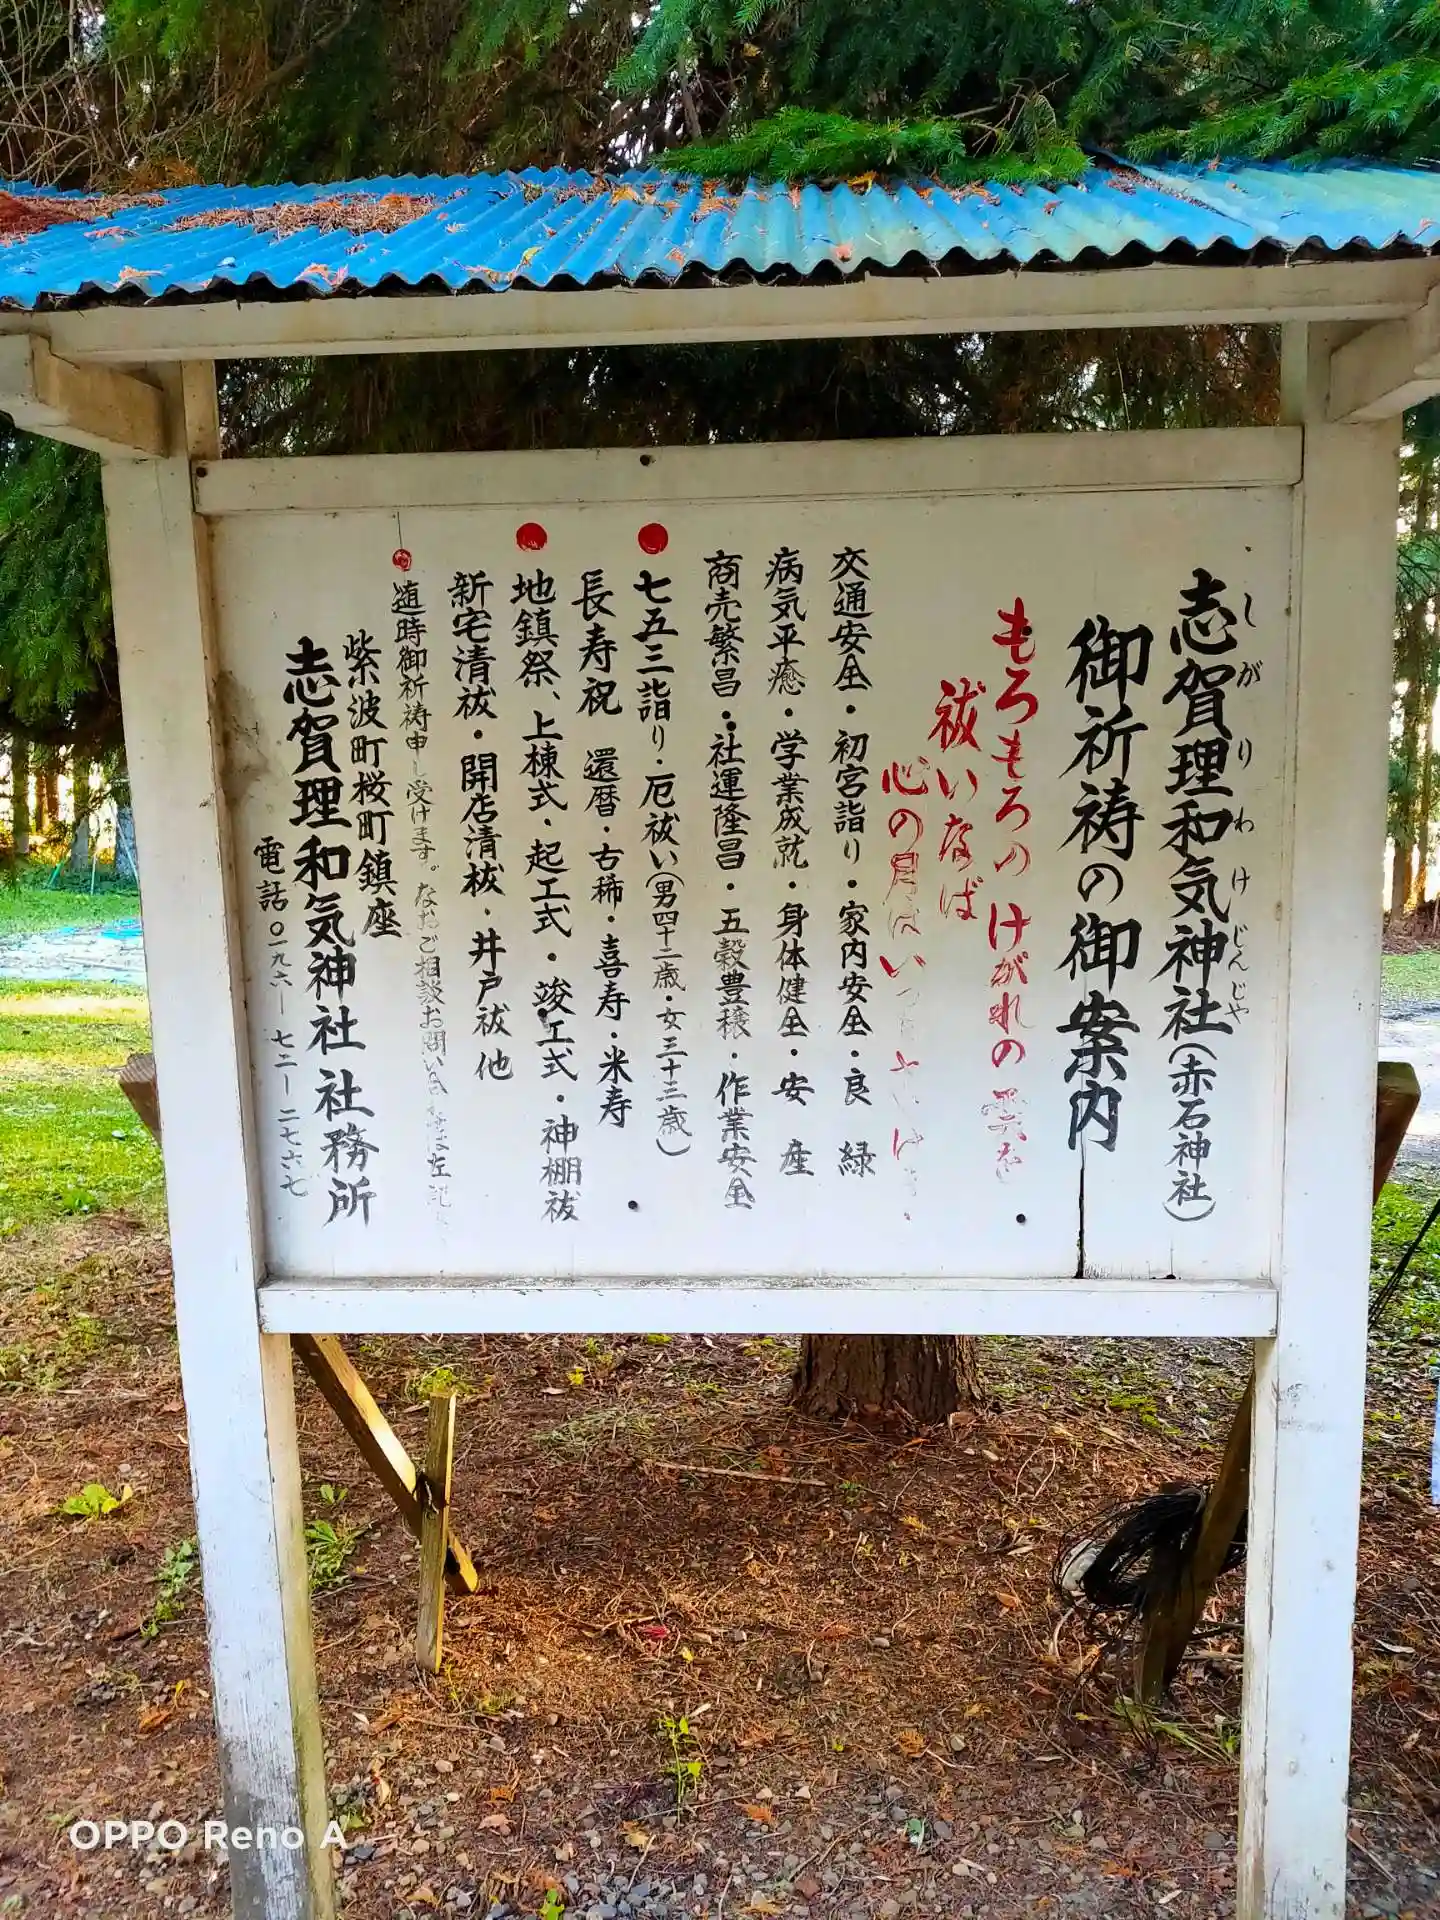 志賀理和気神社(赤石神社)
しがりわけじんじや
御祈祷の御案内
もろもろのけがれの雲を
祓いなば
心の月はい
交通安全・初宮詣り・家内安全・良縁
病気平癒・学業成就・身体健全・安産
商売繁昌・社運隆昌・五穀豊穣・作業安全
七五三詣り・厄祓い(男四十二歳・女三十三歳)
長寿祝 還暦・古稀・喜寿・米寿
地鎮祭、上棟式・起工式・竣工式・神棚祓
新宅清祓・開店清祓・井戸祓他
随時御祈祷申し受けます。なおご相談お問い合わせは左記
紫波町桜町鎮座
志賀理和気神社社務所
電話〇一九六ー七二ー二七六七
OPPO Reno A